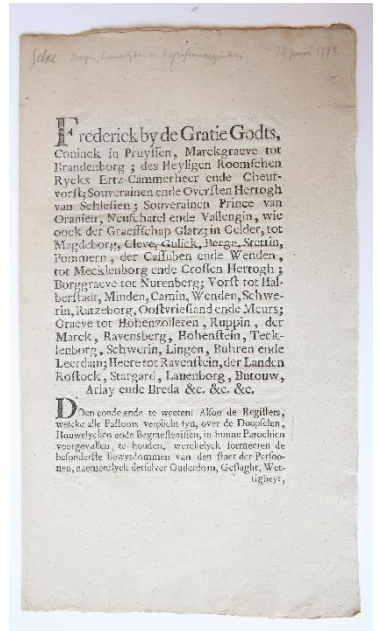 Gelre Doop, huwelijks en begrafenisregisters 24 juni 1772
Frederick by de Gratie Godts,
Coninck in Pruyssen, Marckgraeve tot
Brandenborg ; des Heyligen Roomschen
Rycks Ertz-Cammerheer ende Cheur-
vorst; Souverainen ende Oversten Hertogh
van Schlesien ; Souverainen Prince van
Oranien, Neufchatel ende Vallengin, wie
oock der Graeffschap Glatz; in Gelder, tot
Magdeborg, Cleve, Gulick, Berge, Stettin,
Pommern, der Cassuben ende Wenden,
tot Mecklenborg ende Crossen Hertogh ;
Borggraeve tot Nurenberg; Vorst tot Hal-
berstadt, Minden, Camin, Wenden, Schwe-
rin, Ratzeborg, Oostvriesland ende Meurs;
Graeve tot Hohenzolleren, Ruppin, der
Marck, Ravensberg, Hohenstein, Teck-
lenborg, Schwerin, Lingen, Buhren ende
Leerdam; Heere tot Ravenstein, der Landen
Rostock, Stargard, Lauenborg, Butouw,
Arlay ende Breda &c. &c. &c.
DOen conde ende te weeten: Alsoo de Registers,
welcke alle Pastoors verplicht syn, over de Doopselen,
Houwelycken ende Begraeffenissen, in hunne Parochien
voorgevallen, te houden, werckelyck formeeren de
besonderste bewysdommen van den staet der Persoo-
nen, naementlyck derselver Ouderdom, Geslaght, Wet-
tigheyt,